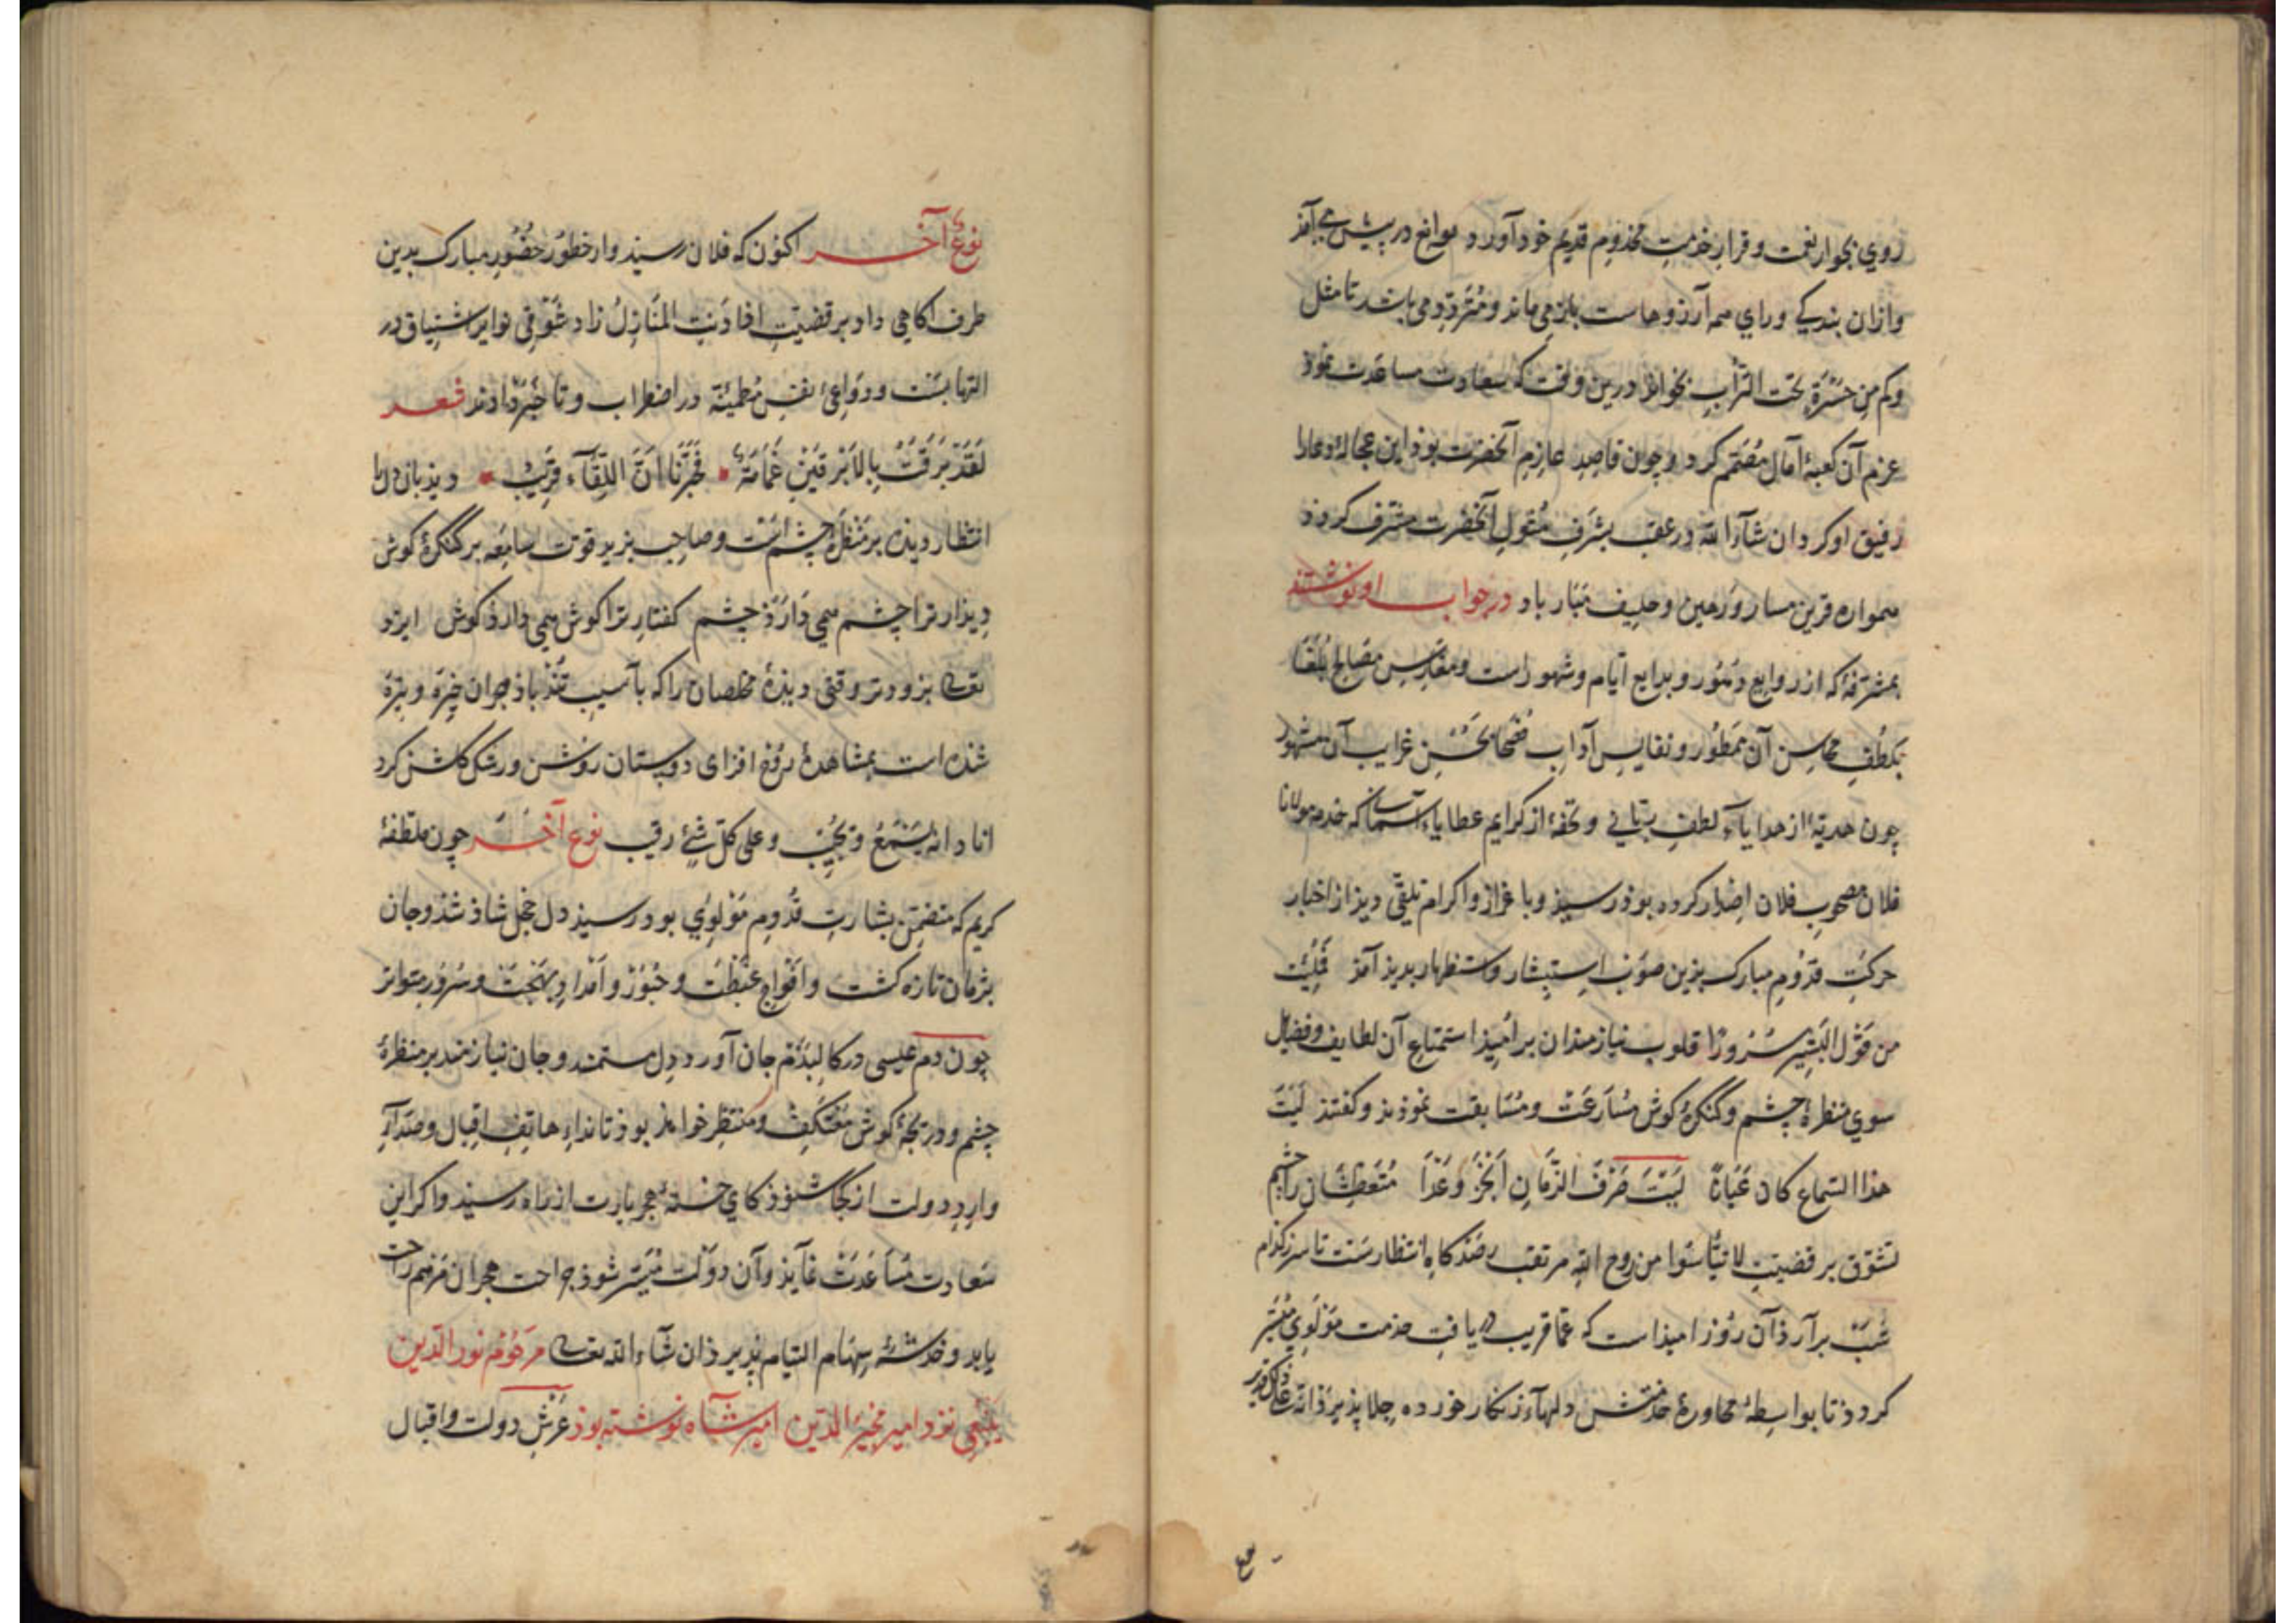 روي بجوار نعمت و قرار خدمت مخدوم قديم خود آورد موانع در پيش مي آمد
و ازان بندكي وراي همه آرزوهاست باز مي ماند و متردد مي باشد تا مثل
وكم من حسرة تحت التراب بخواند درين وقت كه سعادت مساعدت نموذ
عزم آن كعبۀ آمال مصمم كرد و چون قاصد عازم آنحضرت بوذ اين عجاله دعا را
رفيق او كرد ان شآء الله در عقب بشرف مثول آنحضرت مشرف كردذ
همواره قرين مسار و رهين و حليف مبار باد در جواب او نوشتند
مشرفۀ كه از روايع دهور و بدايع ايام و شهور است و مقابس مصالح بلغا
بلطف محاسن آن ممطور و نفايس آداب فصحا بحسن غرايب آن مشهور
چون هديۀ از هداياء لطف رباني و تحفۀ از كرايم عطاياء آسماني كه خدمه مولانا
فلان مصحوب فلان اصدار كرده بوذ رسيذ و با عزاز و اكرام تلقي ديذ از اخبار
حركت قدوم مبارك بذين صوب استبشار و استظهار بديد آمذ فملئت
من قول البشير سرورا قلوب نيازمندان بر اميذ استمتاع آن لطايف و فضايل
سوي منظرۀ چشم و كنكرۀ كوش مسارعت و مسابقت نموذند و كفتند ليت
هذا السماع كان عيانا ليت صرف الزمان انجز وعدا متعطشان را چشم
تشوق بر قضيت لا تيأسوا من روح الله مرتقب رصدكاه انتظارست تا سر از كدام
شب برآرذ آن روز اميذ است كه عما قريب دريافت خدمت مولوي ميسر
كردذ تا بواسطۀ محاورۀ خدمتش دلهاء زنكار خورده جلا پذيرذ انه على ذلك قدير
نوع آخر اكنون كه فلان رسيذ و از خطور حضور مبارك بدين
طرف آكاهي داد بر قضيت اذا دنت المنازل زاد شوقي نواير اشتياق در
التهابست و دواعي نفس مطمئنه در اضطراب و تا خبر داوند شعر
لقد برقت بالابرقين غمامة • فخبرنا ان اللقآء قريب • ديذبان دل را
انتظار ديذه بر منظرۀ چشم است و صاحب بريد قوت سامعه بر كنكرۀ كوش
ديذار ترا چشم همي دارذ چشم كفتار ترا كوش همي دارذ كوش ايزد
تعالى بزودتر وقتي ديذۀ مخلصان را كه بآسيب تندباذ هجران خيره و تيره
شذه است بمشاهدۀ روح افزاى دوستان روشن و رشك كلشن كرد
اناد انه يسمع و يجيب و على كل شئ رقيب نوع آخر چون ملطفۀ
كريم كه متضمن بشارت قدوم مولوي بود رسيذ دل خجل شاذ شذ و جان
پژمان تازه كشت و افواج غبطت و حبور و امداد بهجت و سرور متواتر
چون دم عيسى در كالبدم جان آورد دل مستمند و جان نيازمند بر منظرۀ
چشم و دريچۀ كوش معتكف و منتظر خواهذ بوذ تا نداء هاتف اقبال و صدآء
وارد دولت از كجا شنوذ كاي خستۀ هجر يارت از راه رسيد و اكر اين
سعادت مساعدت نمايذ و آن دولت ميسر شوذ جراحت هجران مرهم راحت
يابد و خدشۀ سهام التيام پذيرذ ان شاء الله تعالى مرحوم نور الدين
نزد امير مجير الدين امير شاه نوشته بوذ عرش دولت و اقبال